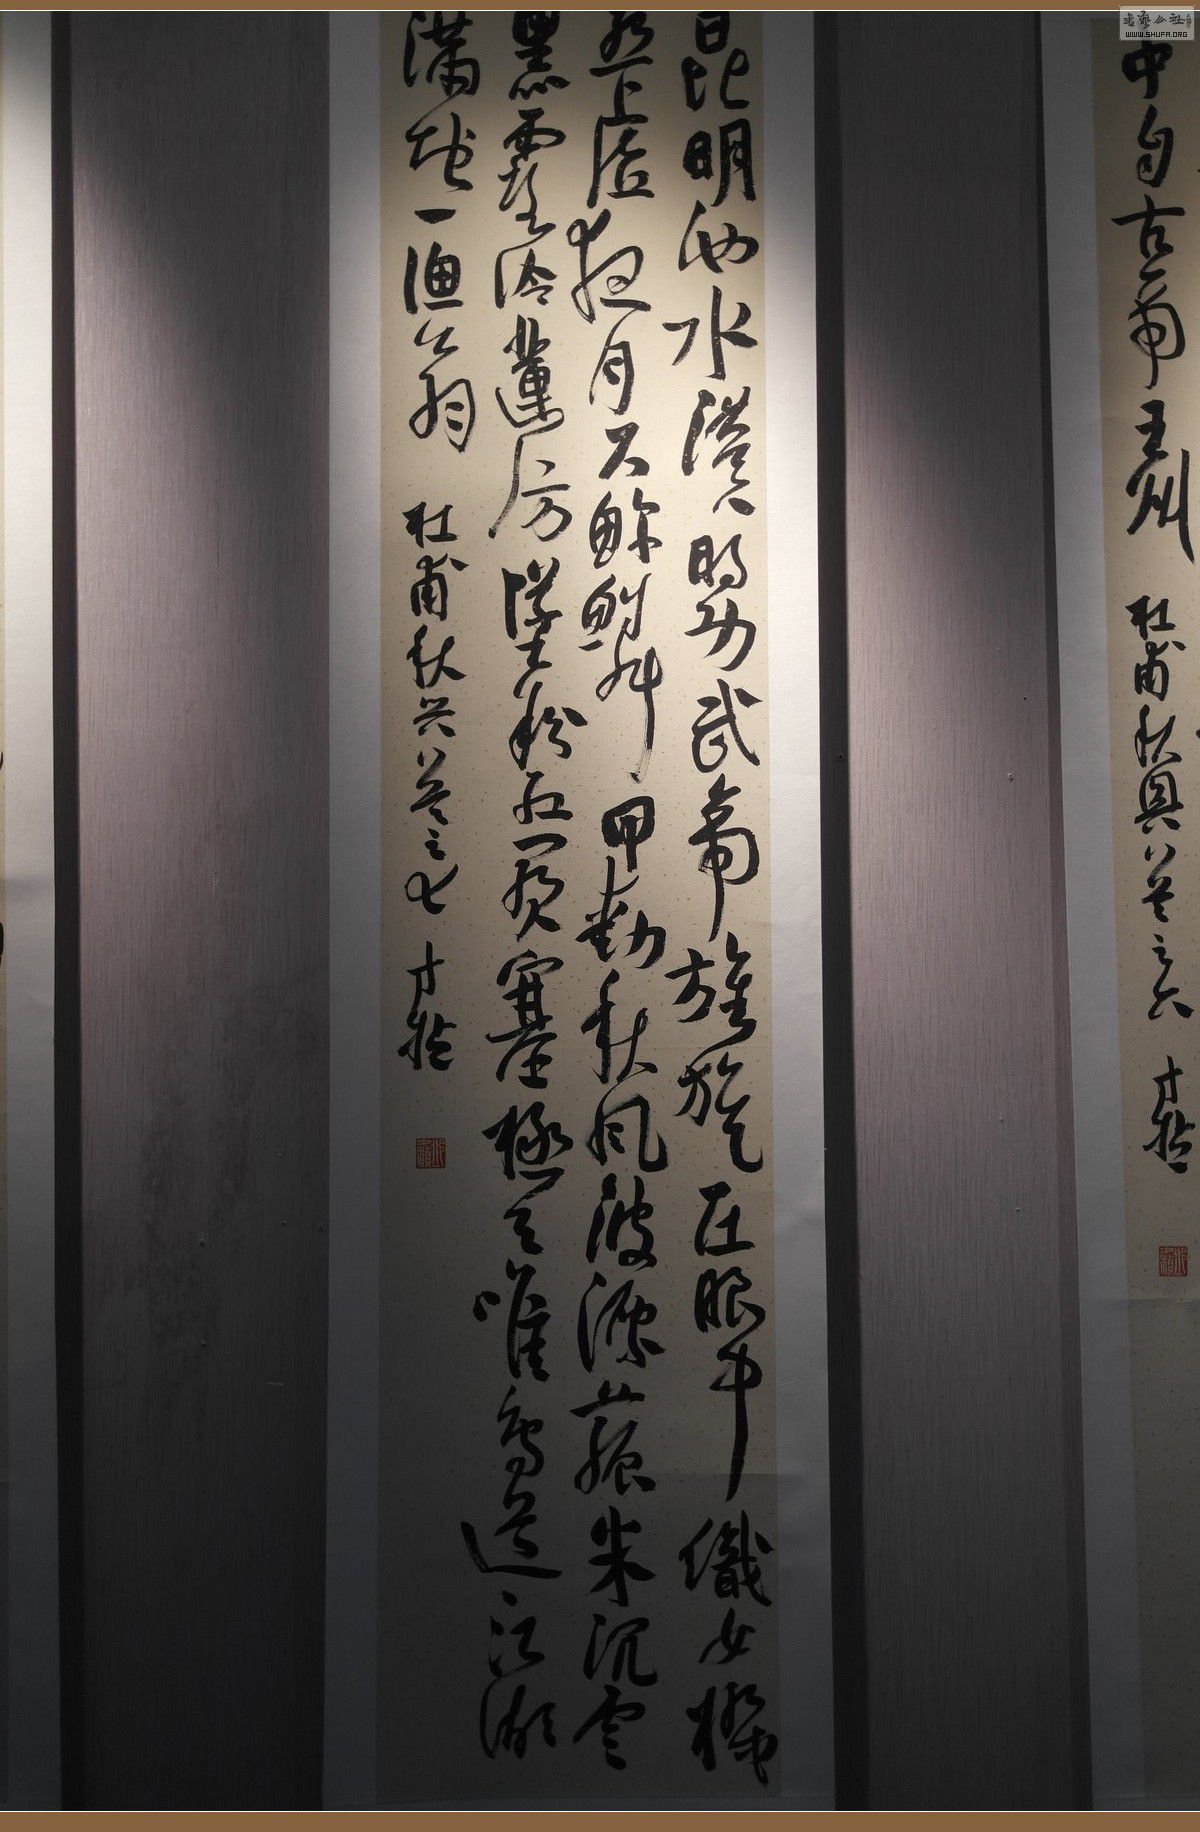 中自古帝王州
杜甫秋興八首之六
昆明池水漢時功武帝旌旗在眼中織女機
絲虛夜月石鯨鱗甲動秋風波漂菰米沉雲
黑露冷蓮房墜粉紅關塞極天唯鳥道江湖
滿地一漁翁
杜甫秋兴八首之七
WWW.SHUFA.ORG